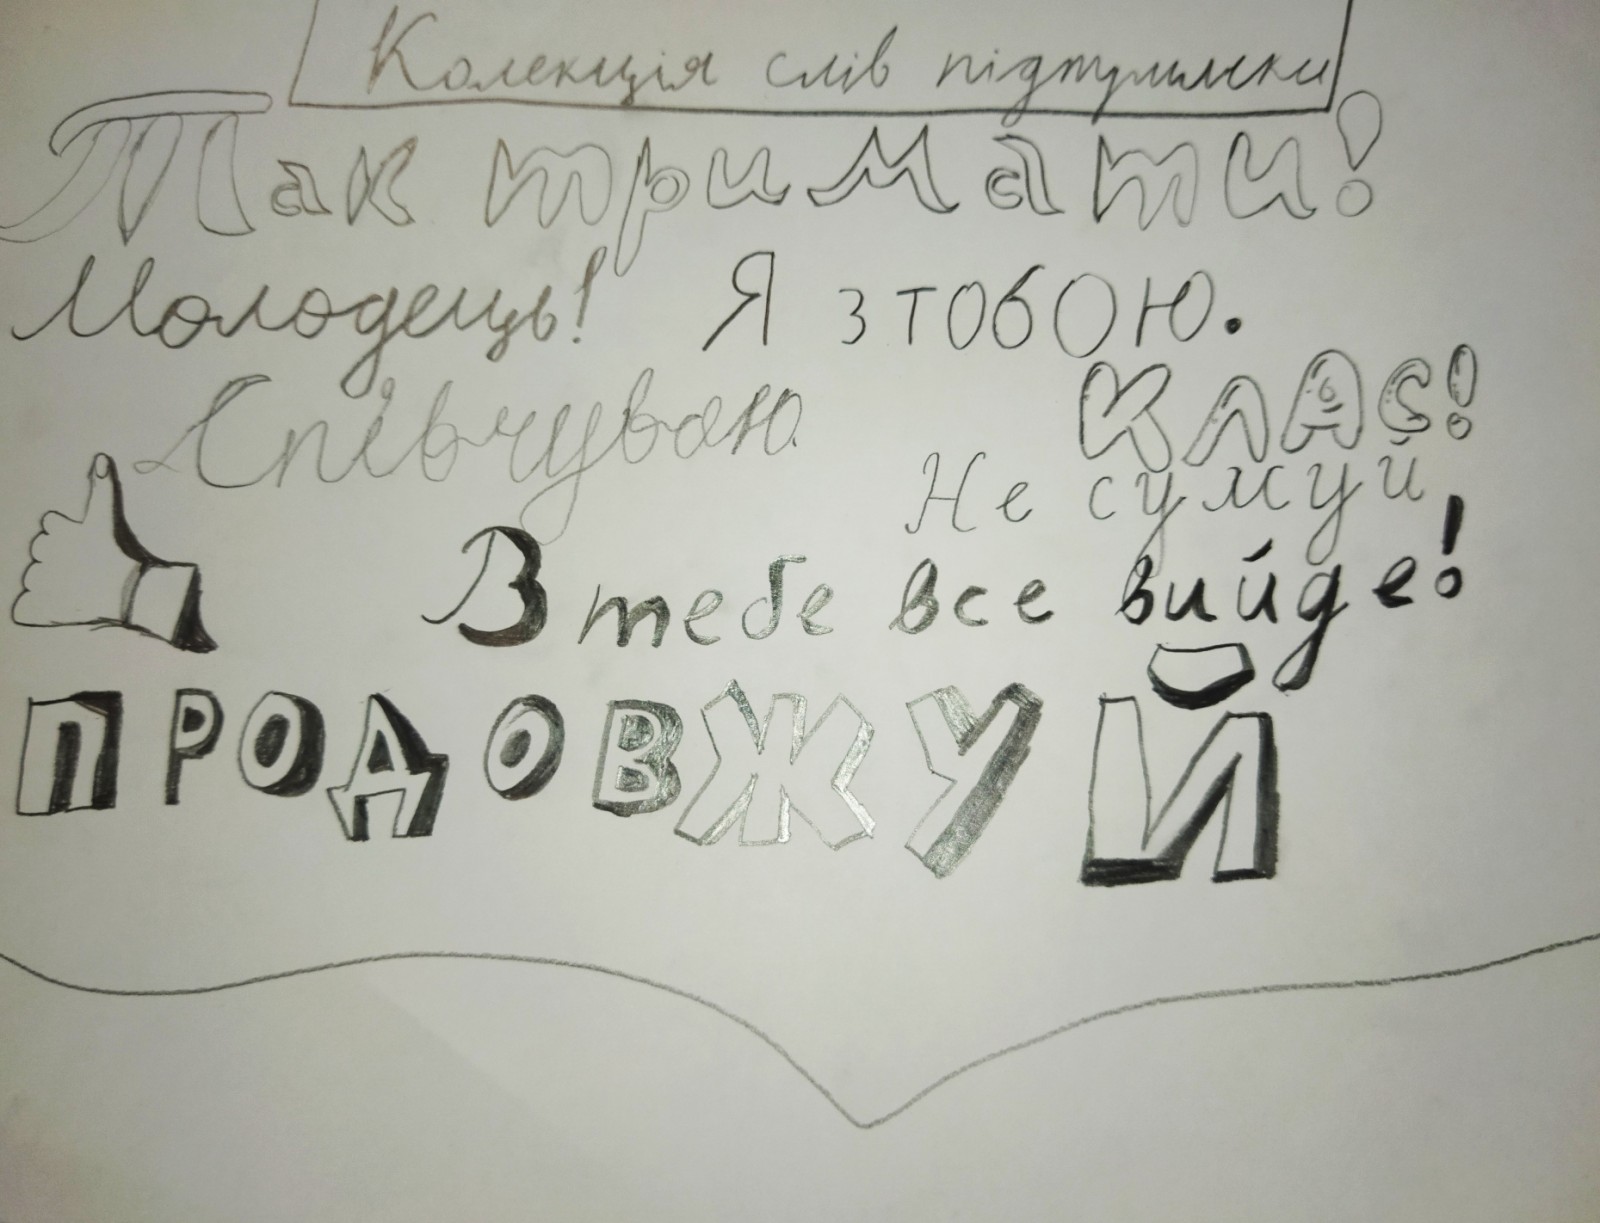 Колекція слів підтримки
Так тримати!
Молодець! Я з тобою.
Співчуваю КЛАС!
Не сумуй
В тебе все вийде!
ПРОДОВЖУЙ